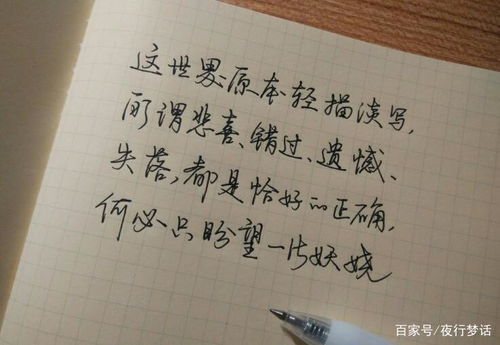 这世界原本轻描淡写,
所谓悲喜、错过、遗憾、
失落,都是恰好的正确,
何必只盼望一片妖娆
百家号/夜行梦话